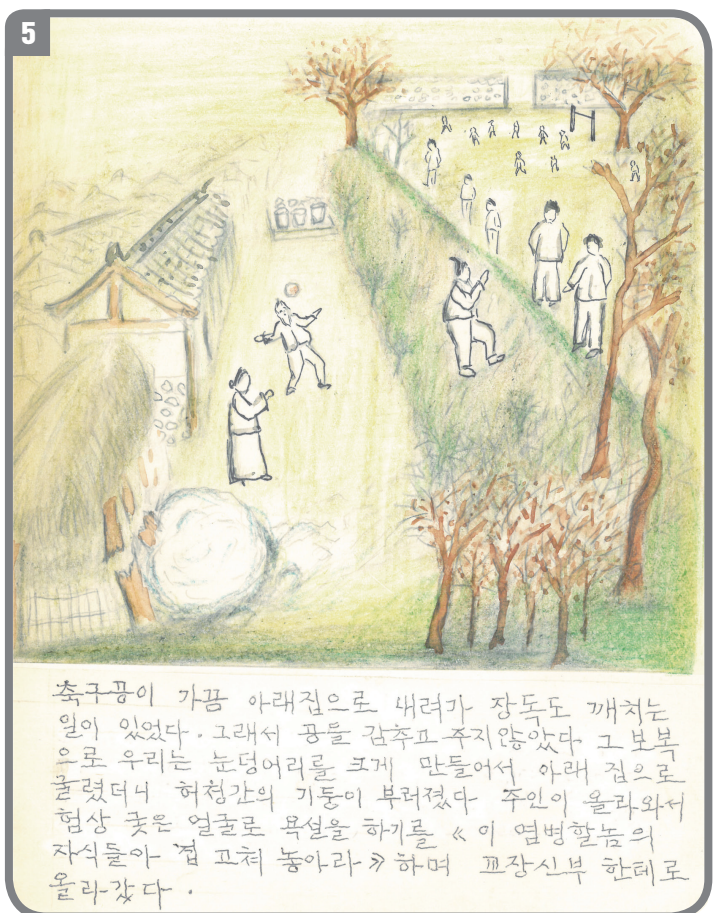 5
축구공이 가끔 아래집으로 내려가 장독도 깨치는
일이 있었다. 그래서 공을 감추고 주지않았다 그 보복
으로 우리는 눈덩어리를 크게 만들어서 아래 집으로
굴렸더니 허청간의 기둥이 부러졌다 주인이 올라와서
험상 궂은 얼굴로 욕설을 하기를 《이 염병할놈의
자식들아 집 고쳐 놓아라》하며 교장신부 한테로
올라갔다.